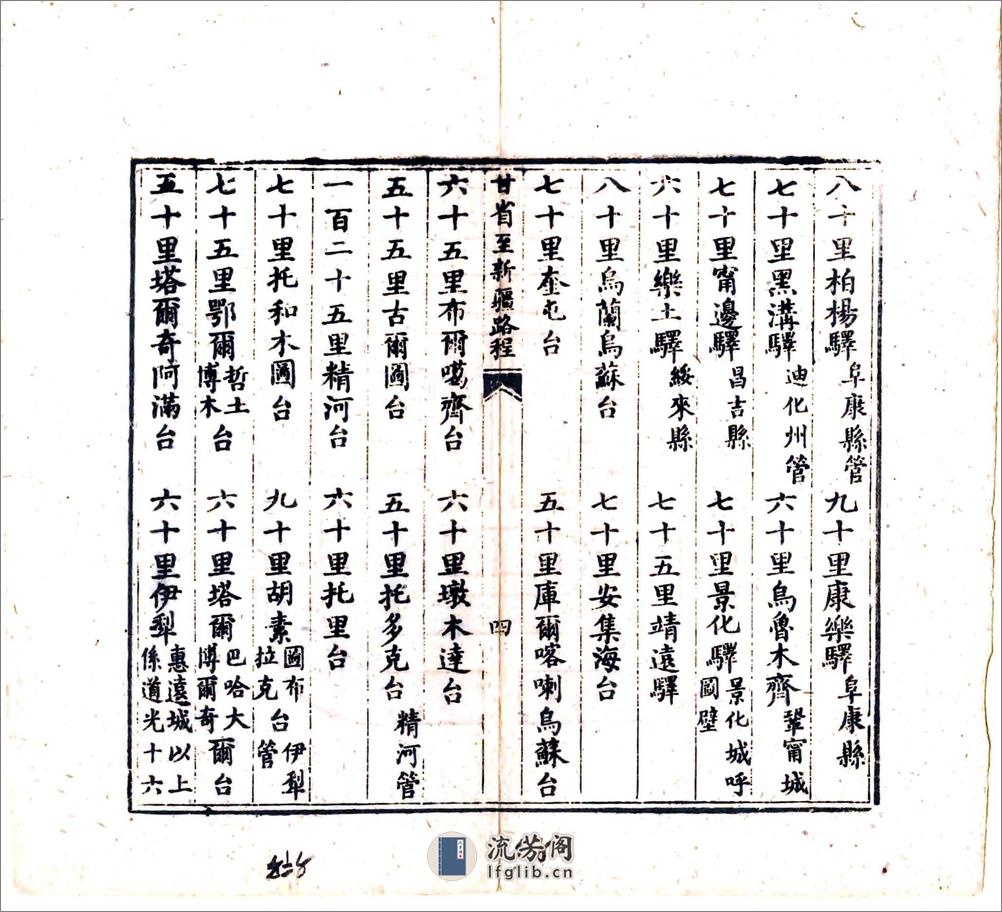 八十里柏楊驛阜康縣管 九十里康樂驛阜康縣
七十里黑溝驛迪化州管 六十里烏魯木齊鞏甯城
七十里甯邊驛昌吉縣 七十里景化驛景化城呼圖壁
六十里樂土驛綏來縣 七十五里靖遠驛
八十里烏蘭烏蘇台 七十里安集海台
七十里奎屯台 五十里庫爾喀喇烏蘇台
甘省至新疆路程 四
六十五里布爾噶齊台 六十里墩木達台
五十五里古爾圖台 五十里托多克台精河管
一百二十五里精河台 六十里托里台
七十里托和木圖台 九十里胡素圖布拉克台伊犁管
七十五里鄂爾哲土博木台 六十里塔爾巴哈大博爾奇爾台
五十里塔爾奇阿滿台 六十里伊犁惠遠城以上係道光十六
流芳閣
lfglib.cn